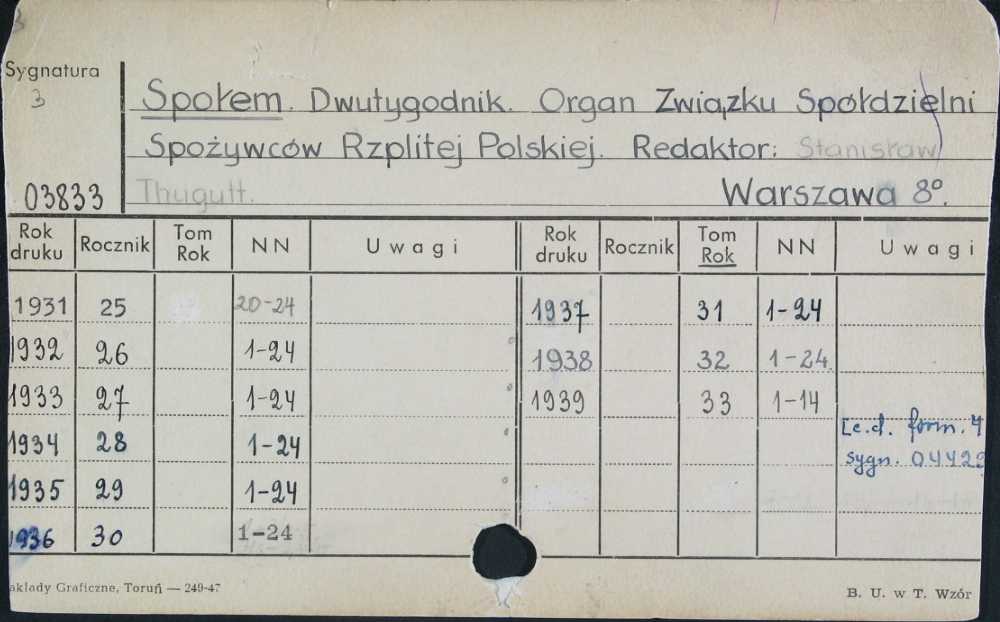 3
Sygnatura
3
Społem. Dwutygodnik. Organ Związku Spółdzielni
Spożywców Rzplitej Polskiej. Redaktor: Stanisław
03833 Thugutt. Warszawa 8º.
Rok druku Rocznik Tom Rok NN Uwagi Rok druku Rocznik Tom Rok NN Uwagi
1931 25 20-24 1937 31 1-24
1932 26 1-24 1938 32 1-24
1933 27 1-24 1939 33 1-14
1934 28 1-24 [c.d. form. 4
1935 29 1-24 sygn. 04429
1936 30 1-24
akłady Graficzne, Toruń — 249-47 B. U. w T. Wzór